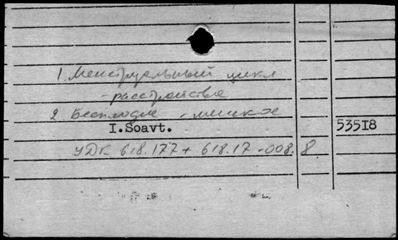 1. Менструальный цикл
- расстройства
2. Бесплодие - женское
I.Soavt.
53518
УДК 618.177 + 618.17-008.8